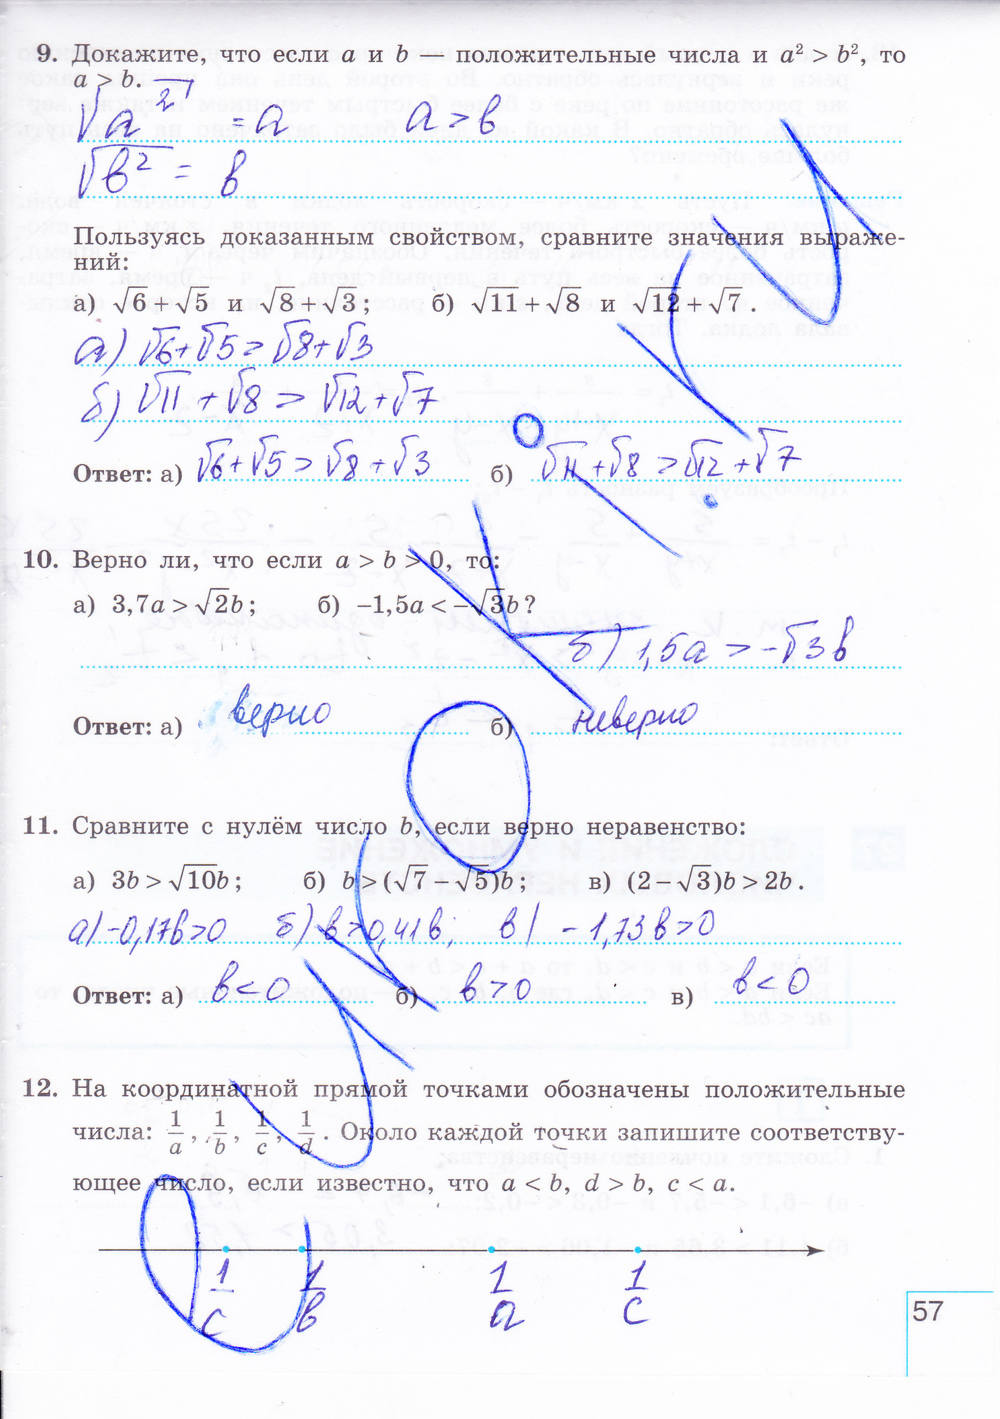 9. Докажите, что если a и b — положительные числа и a² > b², то
a > b.
√a² = a a > b
√b² = b
Пользуясь доказанным свойством, сравните значения выраже-
ний:
а) √6 + √5 и √8 + √3 ; б) √11 + √8 и √12 + √7 .
а) √6+√5 > √8+√3
б) √11 + √8 > √12 + √7
Ответ: а) √6+√5 > √8 + √3 б) √11 + √8 > √12 + √7
10. Верно ли, что если a > b > 0, то:
а) 3,7a > √2b ; б) –1,5a < –√3b ?
б) 1,5a > -√3b
Ответ: а) верно б) неверно
11. Сравните с нулём число b, если верно неравенство:
а) 3b > √10b ; б) b > (√7 – √5)b ; в) (2 – √3)b > 2b .
а) -0,17b>0 б) b>0,41b; в) -1,73b>0
Ответ: а) b<0 б) b>0 в) b<0
12. На координатной прямой точками обозначены положительные
числа: 1/a , 1/b , 1/c , 1/d . Около каждой точки запишите соответству-
ющее число, если известно, что a < b, d > b, c < a.
1/c 1/b 1/a 1/c
57